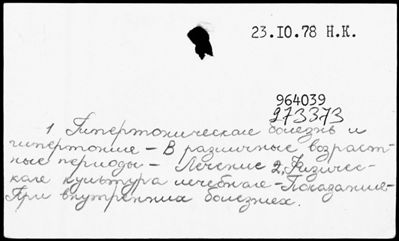 23.IO.78 Н.К.
964039
273373
1 Гипертоническая болезнь и
гипертония - В различные возраст-
ные периоды - Лечение 2, Физичес-
кая культура лечебная - Показания -
При внутренних болезнях.